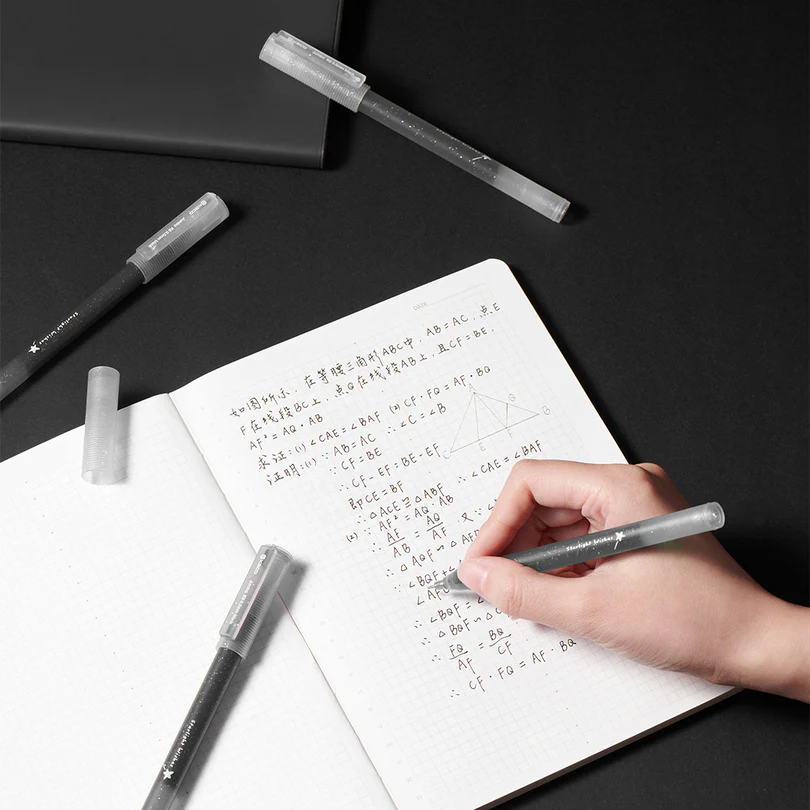 DATE
如图所示，在等腰三角形ABC中，AB=AC，点E
F在线段BC上，点Q在线段AB上，且CF=BE，
AF²=AQ·AB
求证：(1) ∠CAE=∠BAF (2) CF·FQ=AF·BQ
证明：(1) ∵ AB=AC ∴∠C=∠B
∵ CF=BE
∴ CF-EF=BE-EF
即CE=BF
∴ △ACE≌△ABF ∴ ∠CAE=∠BAF
(2) ∵ AF²=AQ·AB
∴ AF/AB = AQ/AF 又∵
∴ △AQF∽△AF
∴ ∠BQF+∠
∠AF
∴ ∠BQF=∠
∴ △BQF∽△C
∴ FQ/AF = BQ/CF
∴ CF·FQ=AF·BQ
A
Q
B
C
E
F
Starlight Wishes
Starlight Wishes
Starlight Wishes